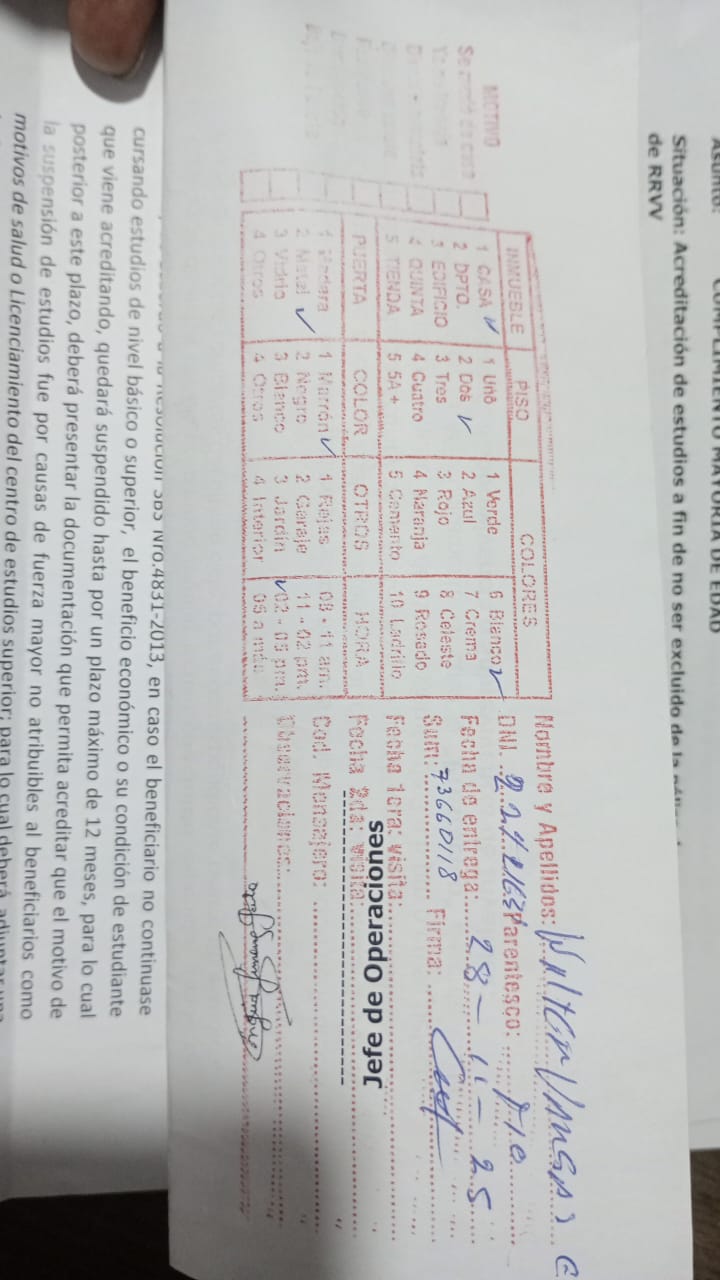 CUMPLIMIENTO MAYORIA DE EDAD
Situación: Acreditación de estudios a fin de no ser excluido de la
de RRVV
MOTIVO
INMUEBLE PISO COLORES
1 CASA ✓ 1 Uno 1 Verde 6 Blanco ✓
2 DPTO. 2 Dos ✓ 2 Azul 7 Crema
3 EDIFICIO 3 Tres 3 Rojo 8 Celeste
4 QUINTA 4 Cuatro 4 Naranja 9 Rosado
5 TIENDA 5 5A + 5 Cemento 10 Ladrillo
PUERTA COLOR OTROS HORA
1 Madera 1 Marrón ✓ 1 Rejas 09 - 11 am.
2 Metal ✓ 2 Negro 2 Garaje 11 - 02 pm.
3 Vidrio 3 Blanco 3 Jardín ✓ 02 - 05 pm.
4 Otros 4 Otros 4 Interior 05 a más
Nombre y Apellidos: Walter
DNI. Parentesco:
Fecha de entrega: 28 - 11 - 25
Sum: 73660118 Firma:
Fecha 1era. visita:
Fecha 2da. visita:
Jefe de Operaciones
Cod. Mensajero:
Observaciones:
Resolución SBS Nro.4831-2013, en caso el beneficiario no continuase
cursando estudios de nivel básico o superior, el beneficio económico o su condición de estudiante
que viene acreditando, quedará suspendido hasta por un plazo máximo de 12 meses, para lo cual
posterior a este plazo, deberá presentar la documentación que permita acreditar que el motivo de
la suspensión de estudios fue por causas de fuerza mayor no atribuibles al beneficiarios como
motivos de salud o Licenciamiento del centro de estudios superior; para lo cual deberá adjuntar una